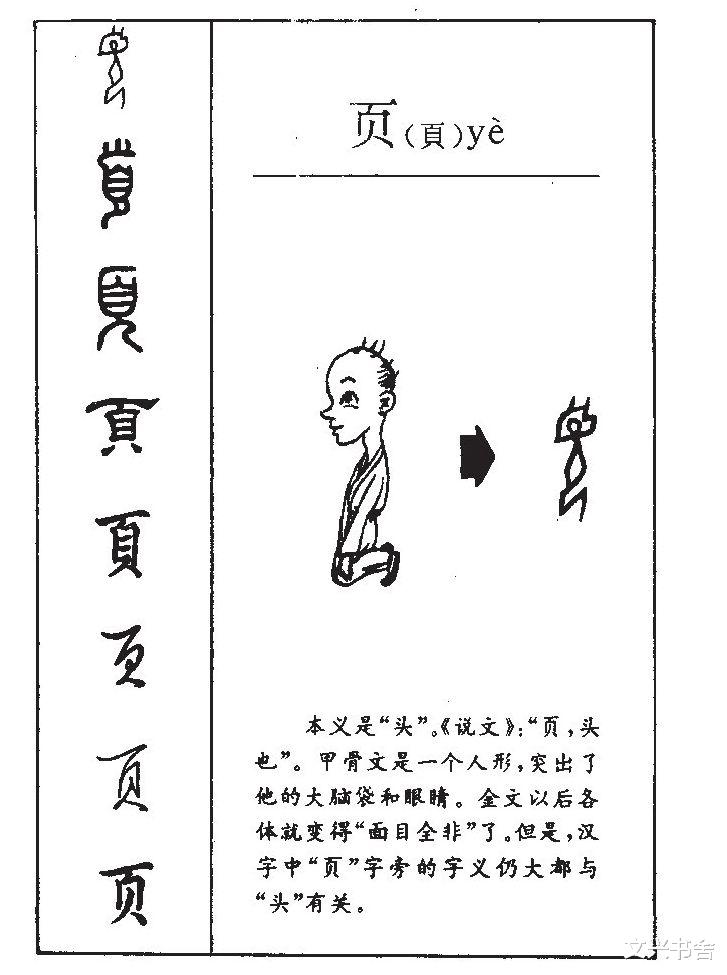 页(頁)yè
頁
頁
页
页
页
本义是“头”。《说文》:“页,头
也”。甲骨文是一个人形,突出了
他的大脑袋和眼睛。金文以后各
体就变得“面目全非”了。但是,汉
字中“页”字旁的字义仍大都与
“头”有关。
文兴书舍